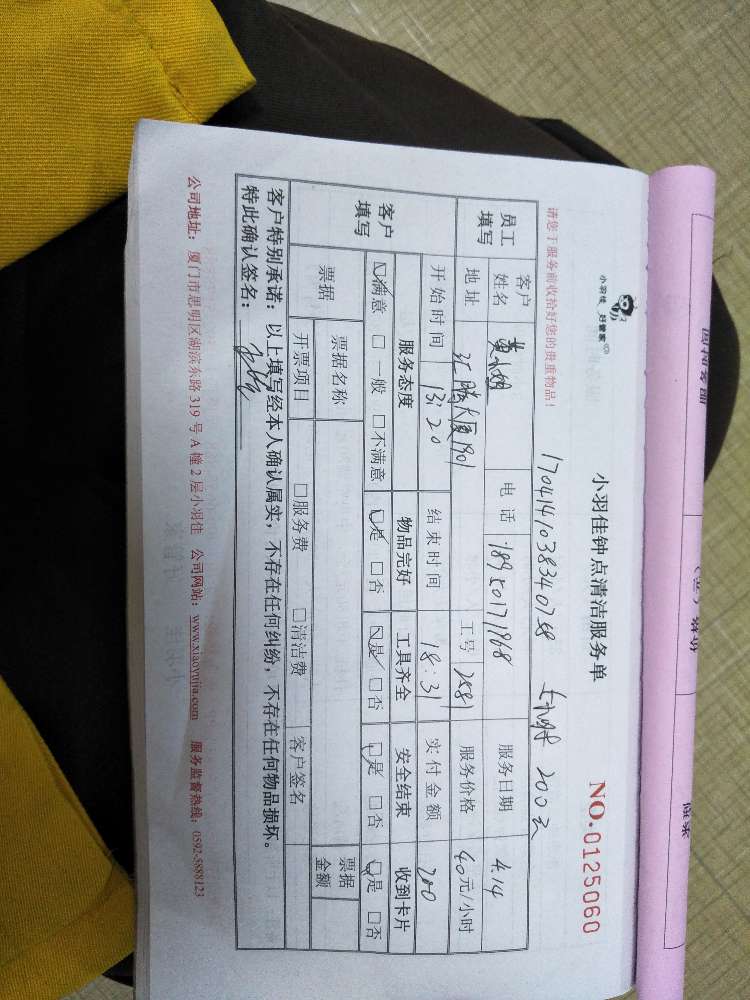 小羽佳 好管家
小羽佳钟点清洁服务单
NO.0125060
请您于服务前收拾好您的贵重物品!
1704141038340758 200元
员工填写 客户姓名 黄小姐 电话 18950171968 服务日期 4.14
地址 汇腾大厦1901 工号 2581 服务价格 40元/小时
客户填写 开始时间 13:20 结束时间 18:31 实付金额 200
服务态度 物品完好 工具齐全 安全结束 收到卡片
☑满意 □一般 □不满意 ☑是 □否 ☑是 □否 ☑是 □否 ☑是 □否
票据 票据名称 票据金额
开票项目 □服务费 □清洁费 客户签名
客户特别承诺:以上填写经本人确认属实,不存在任何纠纷,不存在任何物品损坏。
特此确认签名:
公司地址:厦门市思明区湖滨东路319号A幢2层小羽佳 公司网站:www.xiaoyujia.com 服务监督热线:0592-5888123